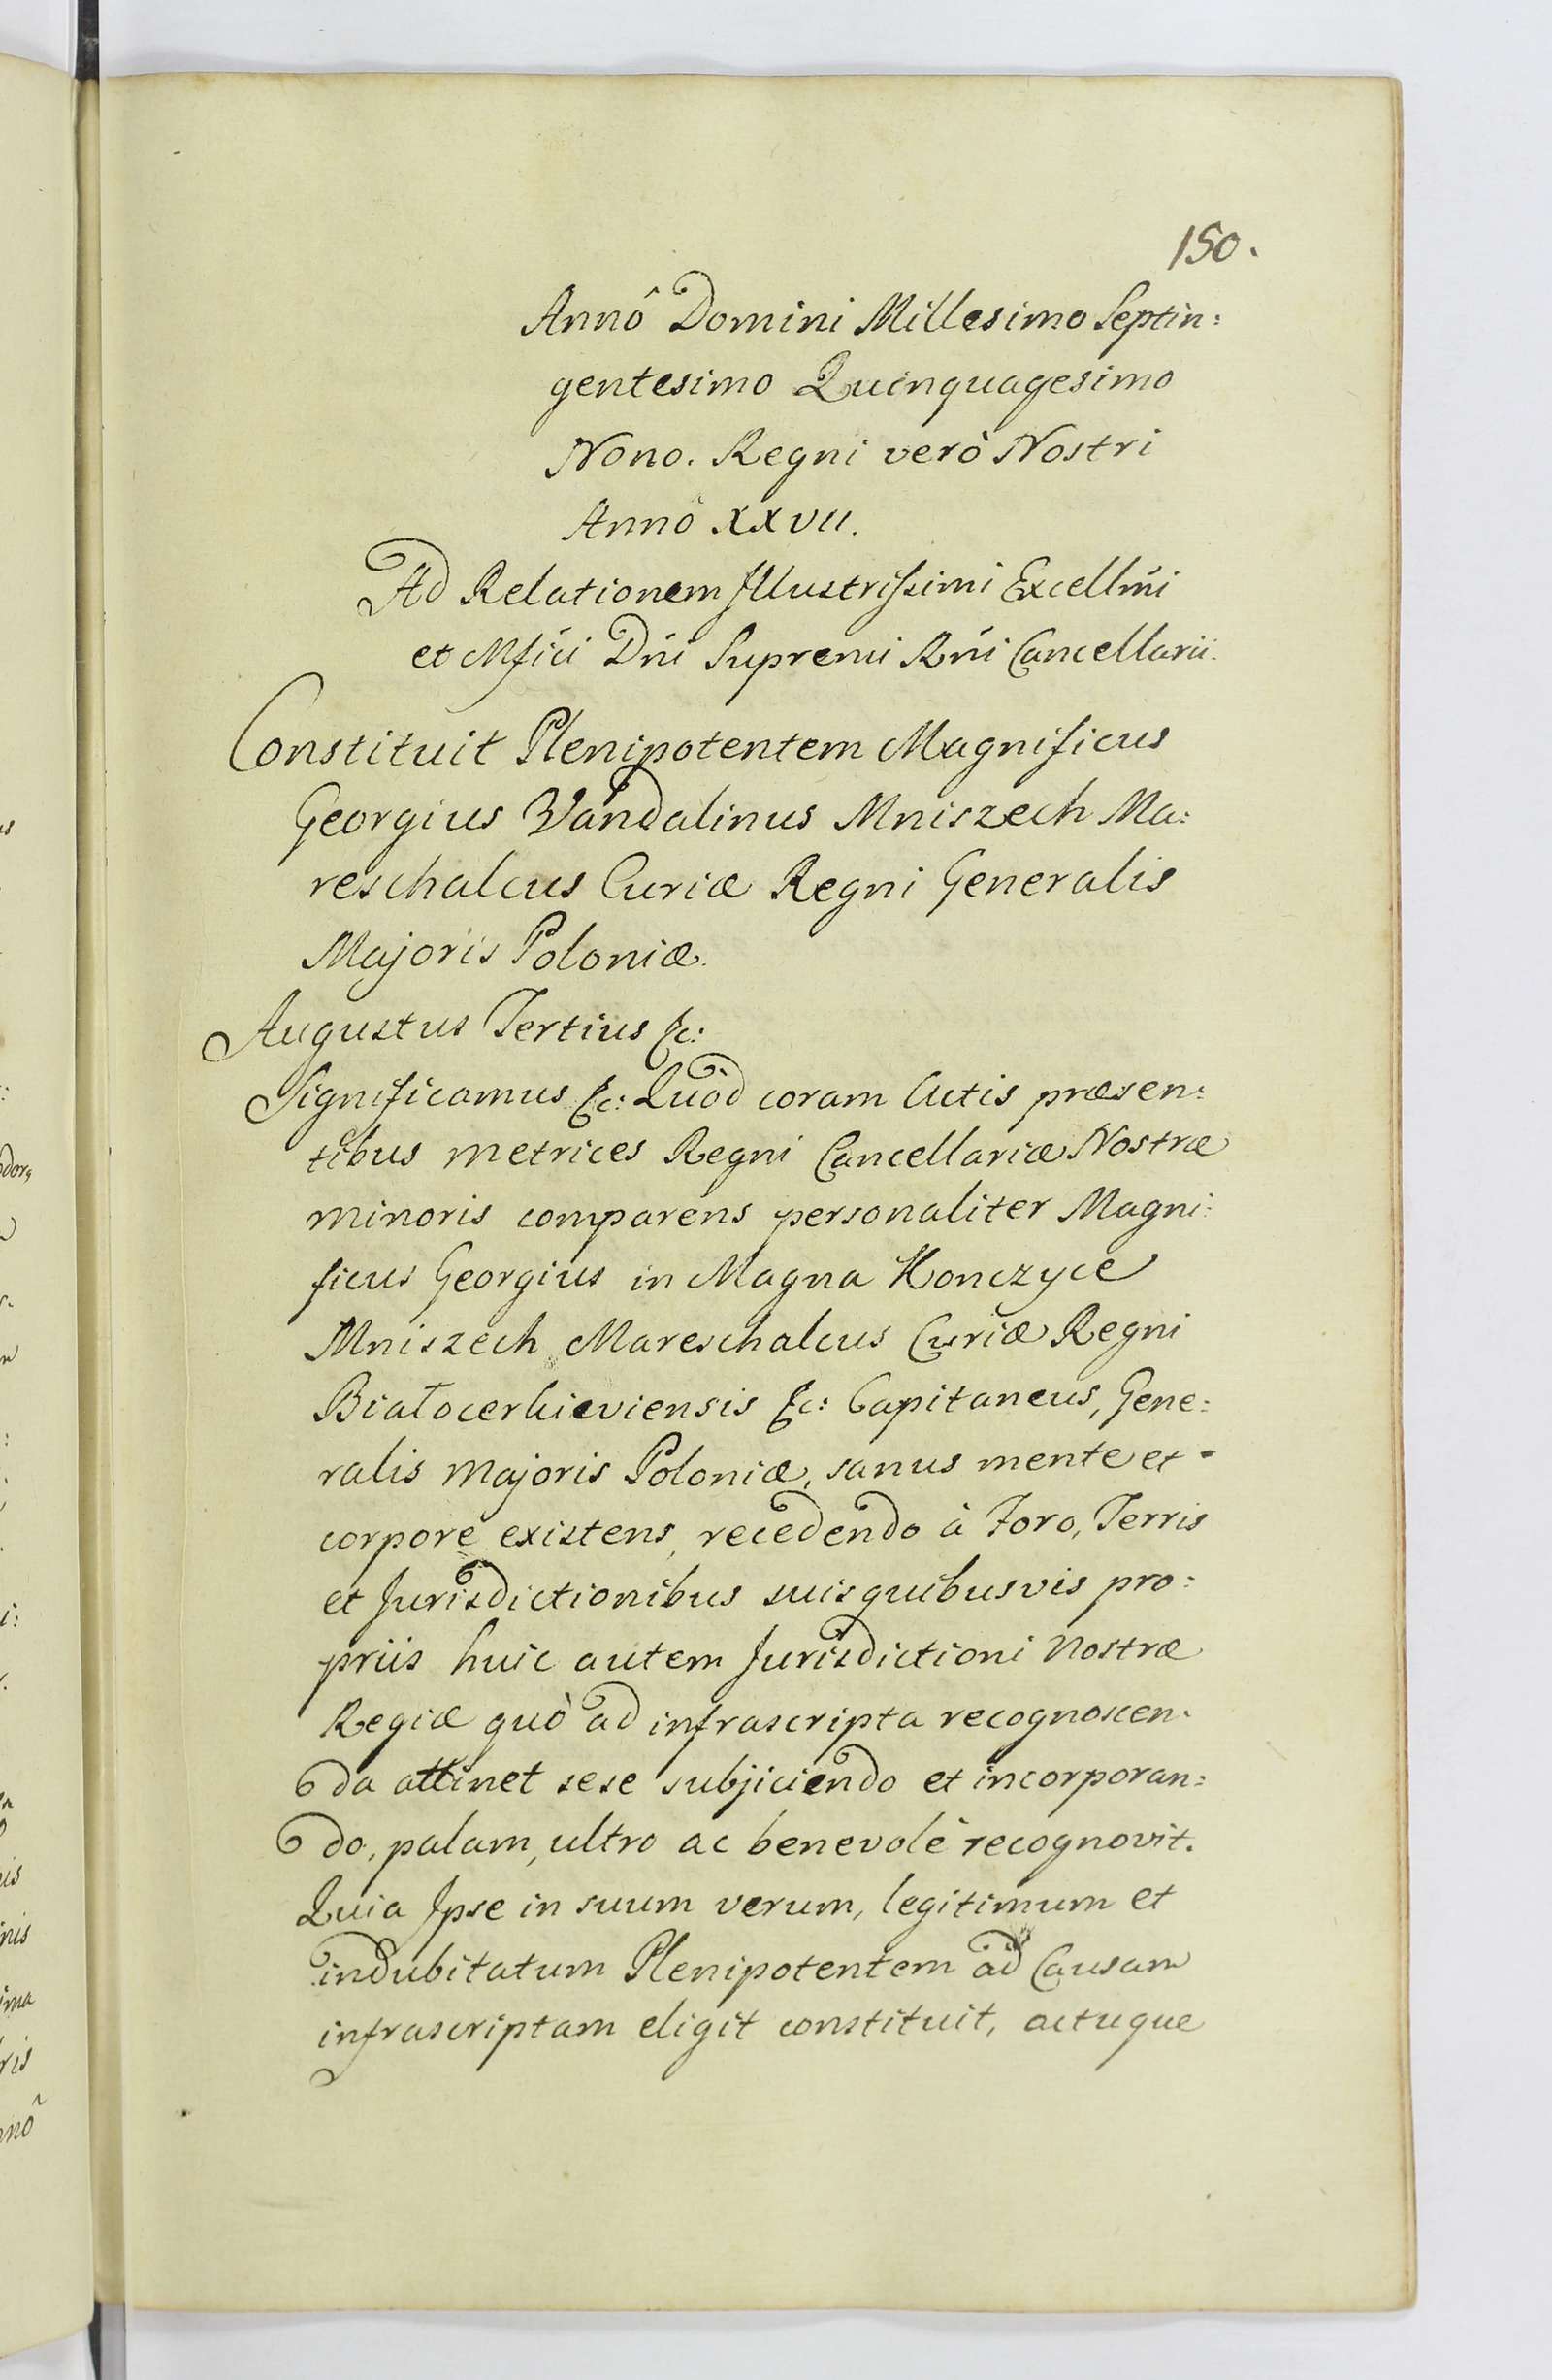 150.
Annô Domini Millesimo Septin:
gentesimo Quinquagesimo
Nono. Regni verò Nostri
Annô XXVII.
Ad Relationem Illustrissimi Excellm̃i
et Mf̃ici Dñi Supremi Rñi Cancellarii.
Constituit Plenipotentem Magnificus
Georgius Vandalinus Mniszech Ma:
reschalcus Curiæ Regni Generalis
Majoris Poloniæ.
Augustus Tertius &c:
Significamus &c: Quòd coram Actis præsen:
tibus metrices Regni Cancellariæ Nostræ
minoris comparens personaliter Magni:
ficus Georgius in Magna Konczyce
Mniszech Mareschalcus Curiæ Regni
Białocerkieviensis &c: Capitaneus, Gene:
ralis Majoris Poloniæ, sanus mente et
corpore existens, recedendo à Foro, Terris
et Jurisdictionibus suis quibusvis pro:
priis huic autem Jurisdictioni Nostræ
Regiæ quò ad infrascripta recognoscen:
da attinet sese subjiciendo et incorporan:
do, palam, ultro ac benevolè recognovit.
Quia Ipse in suum verum, legitimum et
indubitatum Plenipotentem ad Causam
infrascriptam eligit constituit, actuque